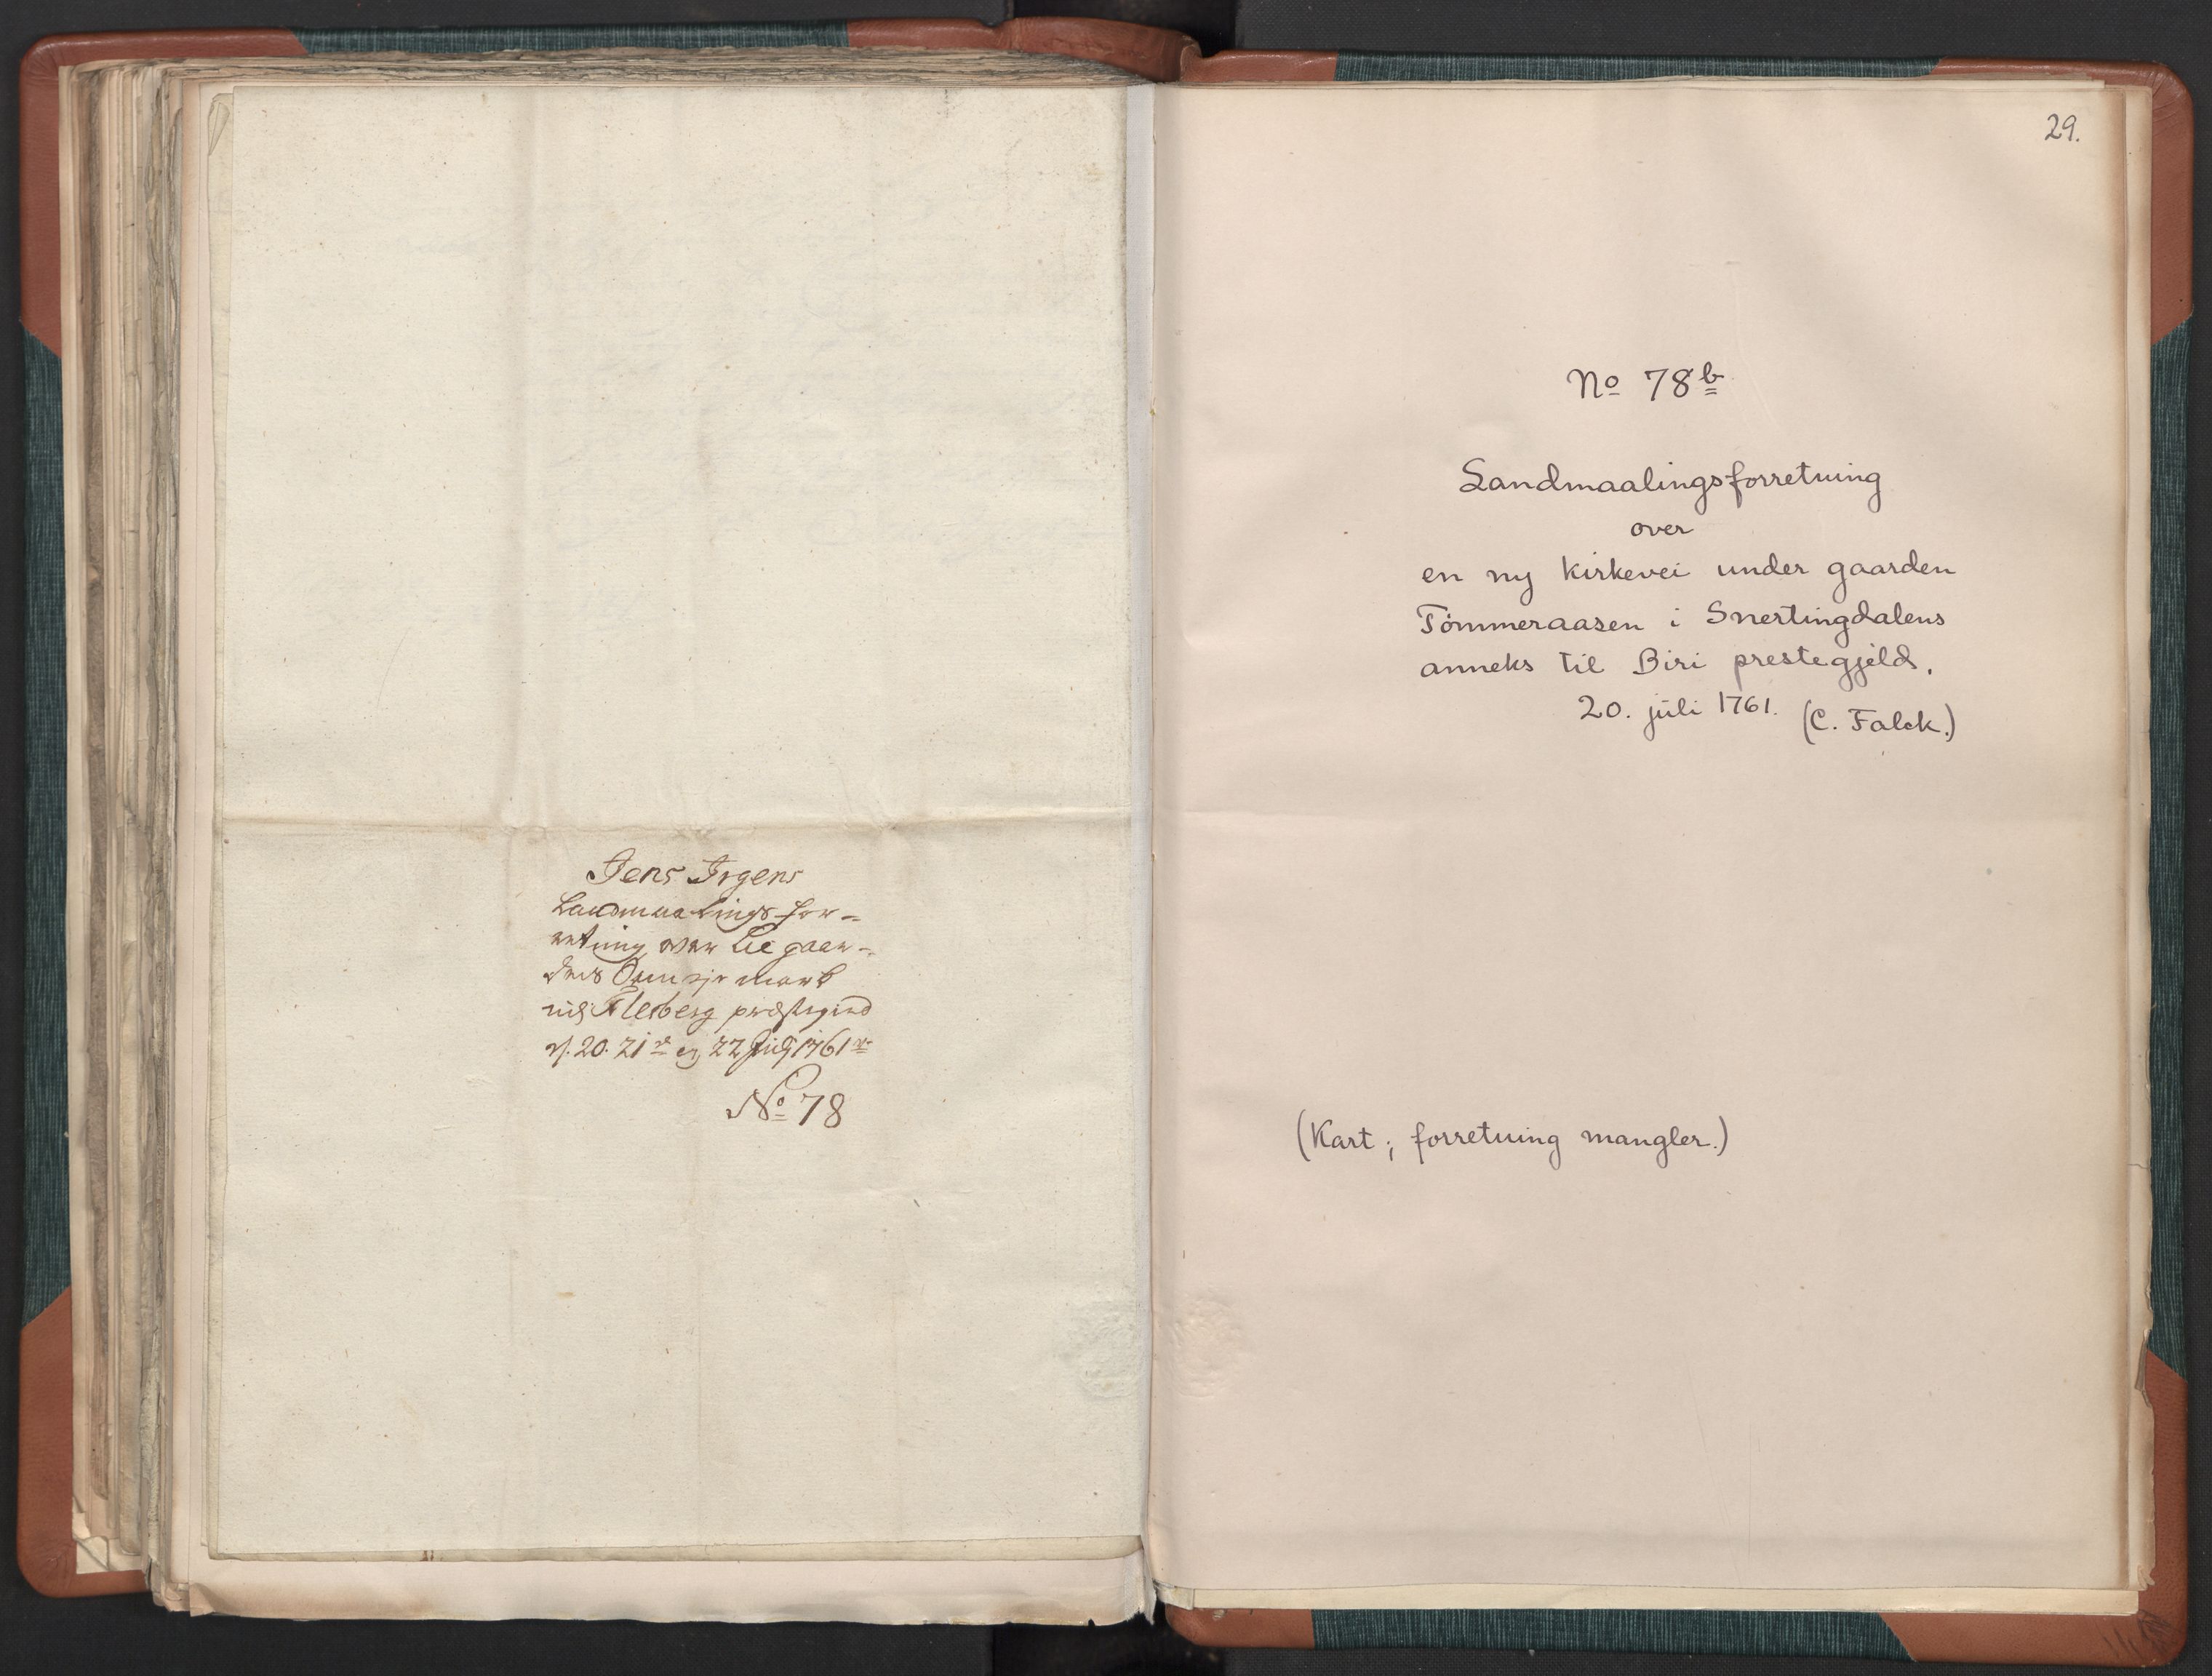 Jens Irgens
Landmaalings for-
retning over Lie gaar-
dens mark
udj Flesberg præstegield
d. 20. 21de og 22 Julj 1761
No 78
29.
No 78b
Landmaalingsforretning
over
en ny kirkevei under gaarden
Tömmeraasen i Snertingdalens
anneks til Biri prestegjeld.
20. juli 1761. (C. Falck.)
(Kart; forretning mangler.)